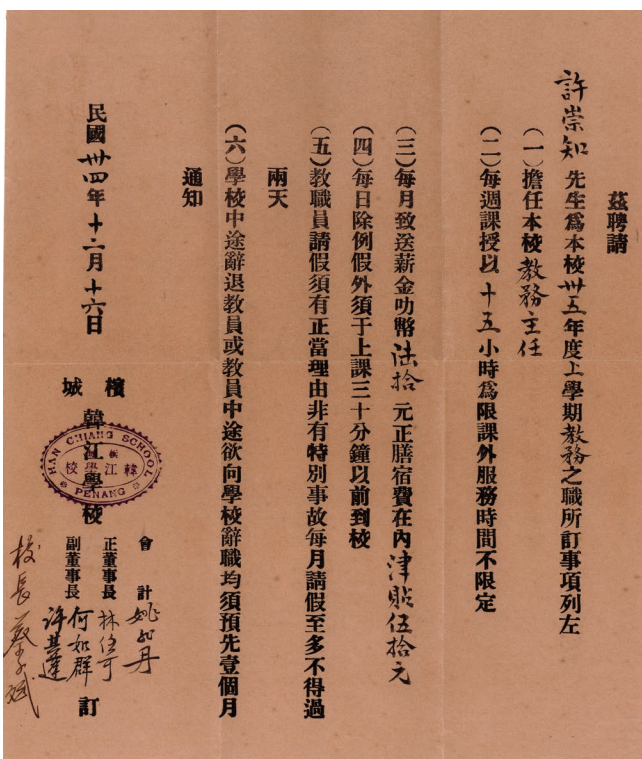 茲聘請
許崇知先生爲本校卅五年度上學期教務之職所訂事項列左
（一）擔任本校教務主任
（二）每週課授以十五小時爲限課外服務時間不限定
（三）每月致送薪金叻幣陸拾元正膳宿費在內津貼伍拾元
（四）每日除例假外須于上課三十分鐘以前到校
（五）教職員請假須有正當理由非有特別事故每月請假至多不得過
兩天
（六）學校中途辭退教員或教員中途欲向學校辭職均須預先壹個月
通知
民國卅四年十二月十六日
檳城
韓江學校
HAN CHIANG SCHOOL
韓江學校
PENANG
會計
正董事長林
副董事長何如群
許其達
校長蔡
訂